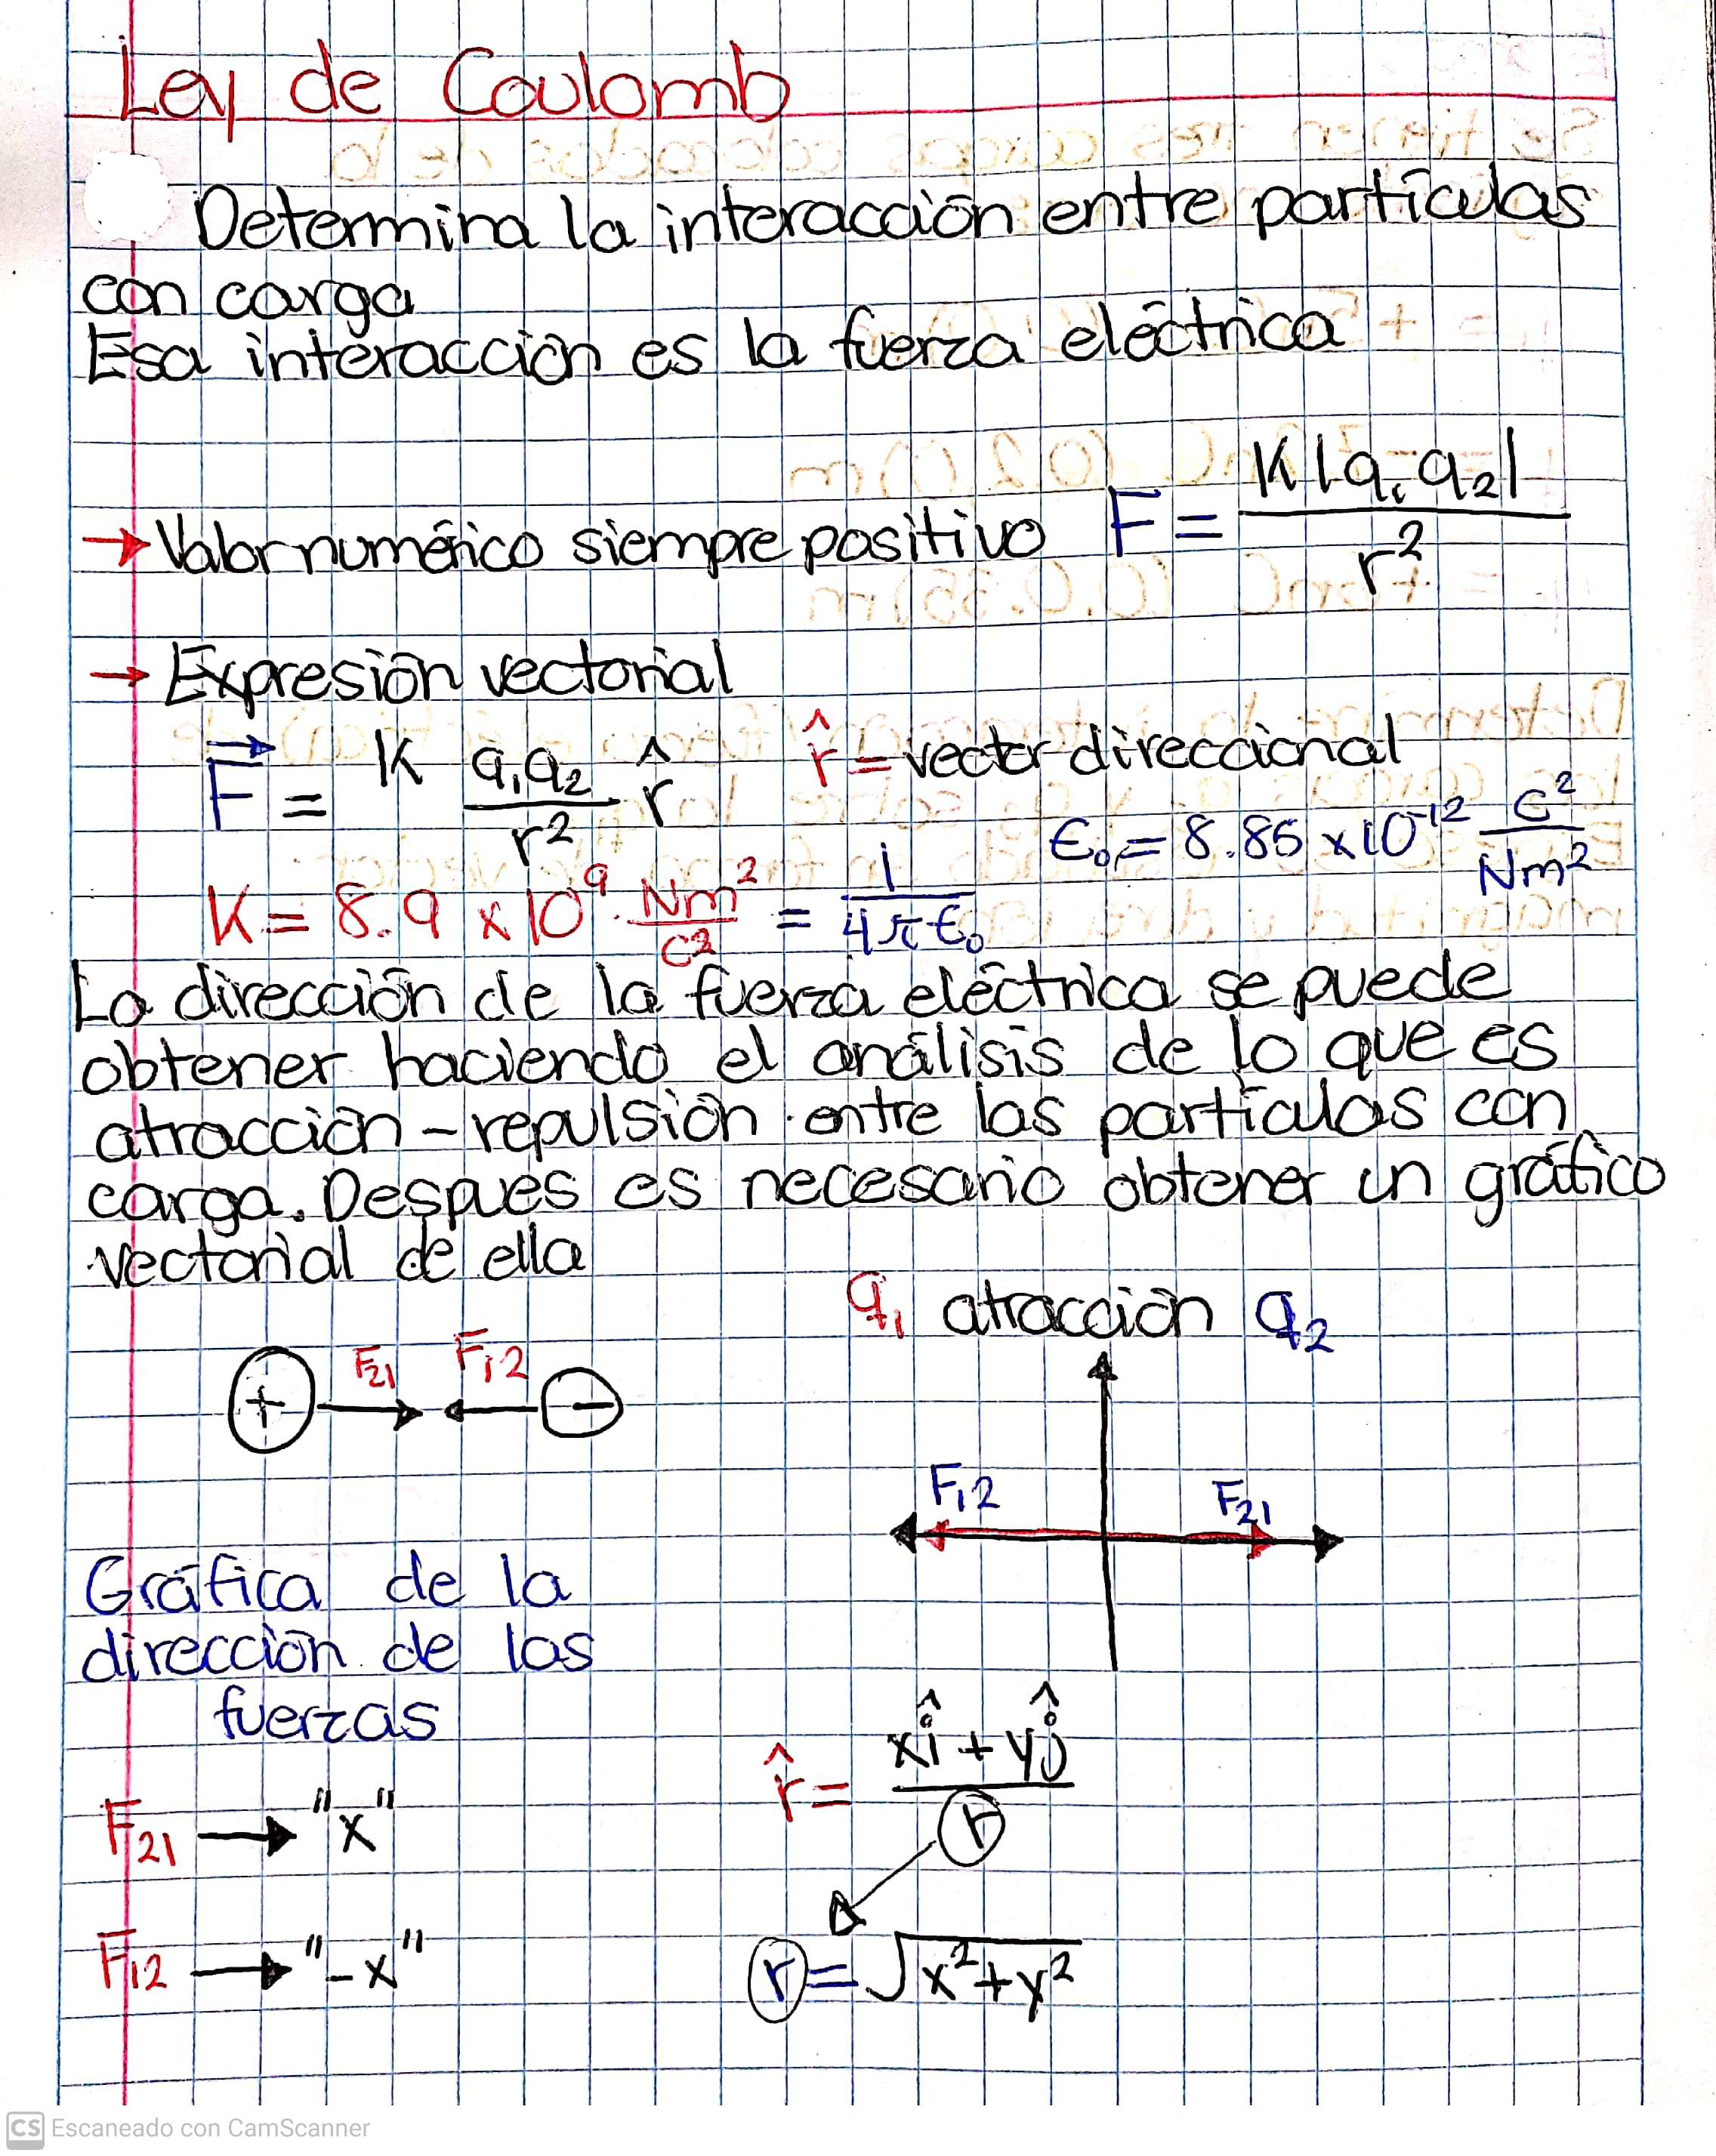 Ley de Coulomb
Determina la interacción entre partículas
con carga
Esa interacción es la fuerza eléctrica
→ Valor numérico siempre positivo F = K|q₁q₂| / r²
→ Expresión vectorial
F⃗ = K q₁q₂ / r² r̂
r̂ = vector direccional
ε₀ = 8.85 x10⁻¹² C² / Nm²
K = 8.9 x10⁹ Nm² / C² = 1 / 4πε₀
La dirección de la fuerza eléctrica se puede
obtener haciendo el análisis de lo que es
atracción - repulsión entre las partículas con
carga. Después es necesario obtener un gráfico
vectorial de ella
q₁ atracción q₂
+ F₂₁ F₁₂ -
F₁₂ F₂₁
Gráfica de la
dirección de las
fuerzas
r̂ = xî + yĵ / r
F₂₁ → "x"
F₁₂ → "-x"
r = √x² + y²
CS Escaneado con CamScanner